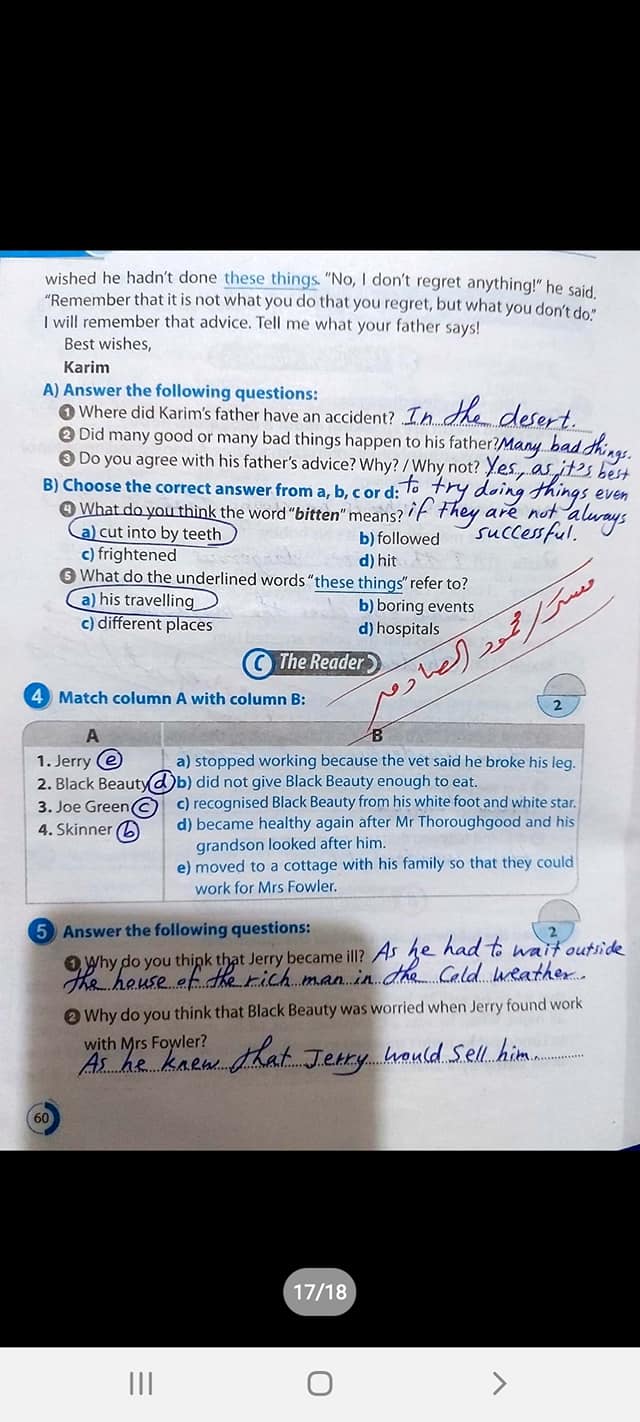 wished he hadn't done these things. "No, I don't regret anything!" he said.
"Remember that it is not what you do that you regret, but what you don't do."
I will remember that advice. Tell me what your father says!
Best wishes,
Karim
A) Answer the following questions:
1 Where did Karim's father have an accident? In the desert.
2 Did many good or many bad things happen to his father? Many bad things.
3 Do you agree with his father's advice? Why? / Why not? Yes, as it's best
B) Choose the correct answer from a, b, c or d: to try doing things even
4 What do you think the word "bitten" means? if they are not always
a) cut into by teeth b) followed successful.
c) frightened d) hit
5 What do the underlined words "these things" refer to?
a) his travelling b) boring events
c) different places d) hospitals
مستر/ محمود الصادق
C The Reader
4 Match column A with column B: 2
A B
1. Jerry e a) stopped working because the vet said he broke his leg.
2. Black Beauty d b) did not give Black Beauty enough to eat.
3. Joe Green c c) recognised Black Beauty from his white foot and white star.
4. Skinner b d) became healthy again after Mr Thoroughgood and his
grandson looked after him.
e) moved to a cottage with his family so that they could
work for Mrs Fowler.
5 Answer the following questions: 2
1 Why do you think that Jerry became ill? As he had to wait outside
the house of the rich man in the Cold weather.
2 Why do you think that Black Beauty was worried when Jerry found work
with Mrs Fowler?
As he knew that Jerry would sell him.
60
17/18